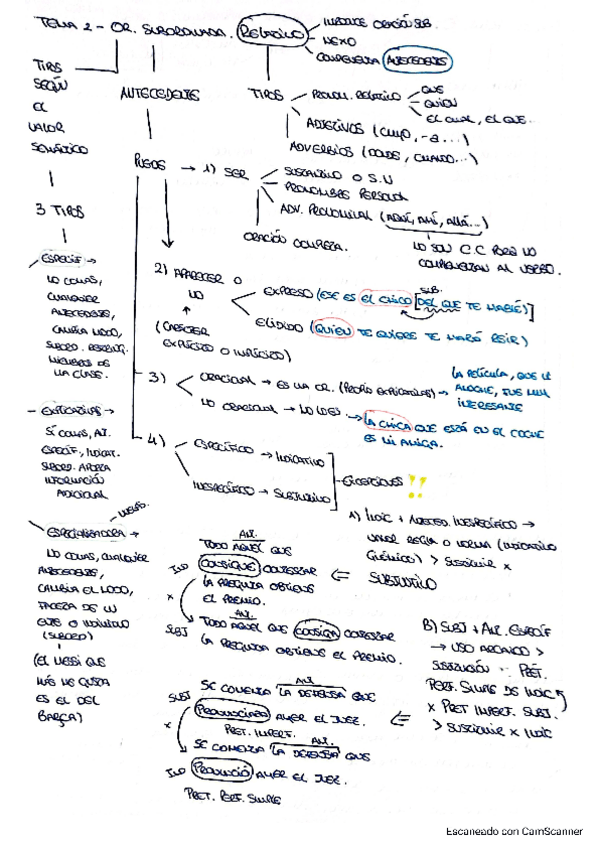 TEMA 2 - OR. SUBORDINADA. RELATIVO
INTRODUCE ORACIÓN SUB.
NEXO
COMPLEMENTA ANTECEDENTE
TIPOS
SEGÚN
EL
VALOR
SEMÁNTICO
3 TIPOS
ANTECEDENTE
TIPOS
PRONOM. RELATIVO
QUE
QUIEN
EL CUAL, EL QUE.
ADJETIVOS (CUYO, -A...)
ADVERBIOS (DONDE, CUANDO...)
REGLAS → 1) SER
SUSTANTIVO O S.N
PRONOMBRE PERSONAL
ADV. PRONOMINAL (AQUÍ, AHÍ, ALLÁ...)
ORACIÓN COMPLETA.
NO SON C.C PORQ NO
COMPLEMENTAN AL VERBO.
ESPECIF →
NO COMAS,
CUALQUIER
ANTECEDENTE,
CAMBIA MODO,
MIEMBROS DE
UNA CLASE.
2) APARECER O
NO
(CARÁCTER
EXPLÍCITO O IMPLÍCITO)
EXPRESO (ESE ES EL CHICO [DEL QUE TE HABLÉ)]
SUB.
ELIDIDO (QUIEN TE QUIERE TE HARÁ REÍR)
3)
ORACIONAL → ES UNA OR. (PROPIO EXPLICATIVAS) →
LA PELÍCULA, QUE VI
ANOCHE, FUE MUY
INTERESANTE
NO ORACIONAL → NO LO ES →
LA CHICA QUE ESTÁ EN EL COCHE
ES MI AMIGA.
- EXPLICATIVAS →
SÍ COMAS, ANT.
ESPECIF, INDICAT.
SUBORD. APORTA
INFORMACIÓN
ADICIONAL
4)
ESPECÍFICO → INDICATIVO
INESPECÍFICO → SUBJUNTIVO
EXCEPCIONES !!
A) INDIC + ANTECED. INESPECÍFICO →
VALOR REGLA O NORMA (INDICATIVO
GNÓMICO) > SUSTITUIR X
SUBJUNTIVO
ESPECIALIZADORA →
NO COMAS, CUALQUIER
ANTECEDENTE,
CAMBIA EL MODO,
FACETA DE UN
ENTE O INDIVIDUO
(SUBORD)
(EL MESSI QUE
MÁS ME GUSTA
ES EL DEL
BARÇA)
ANT.
TODO AQUEL QUE
IND CONSIGUE CONTESTAR
X LA PREGUNTA OBTIENE
EL PREMIO.
ANT.
SUBJ TODO AQUEL QUE CONSIGA CONTESTAR
LA PREGUNTA OBTIENE EL PREMIO.
B) SUBJ + ANT. ESPECÍF
→ USO ARCAICO >
SUSTITUCIÓN PRET.
PERF. SIMPLE DE INDIC
X PRET IMPERF. SUBJ.
> SUSTITUIR X INDIC
ANT.
SE COMENTA LA DEFENSA QUE
SUBJ PRONUNCIARA AYER EL JUEZ.
X PRET. IMPERF.
ANT.
SE COMENTA LA DEFENSA QUE
IND PRONUNCIÓ AYER EL JUEZ.
PRET. PERF. SIMPLE
Escaneado con CamScanner